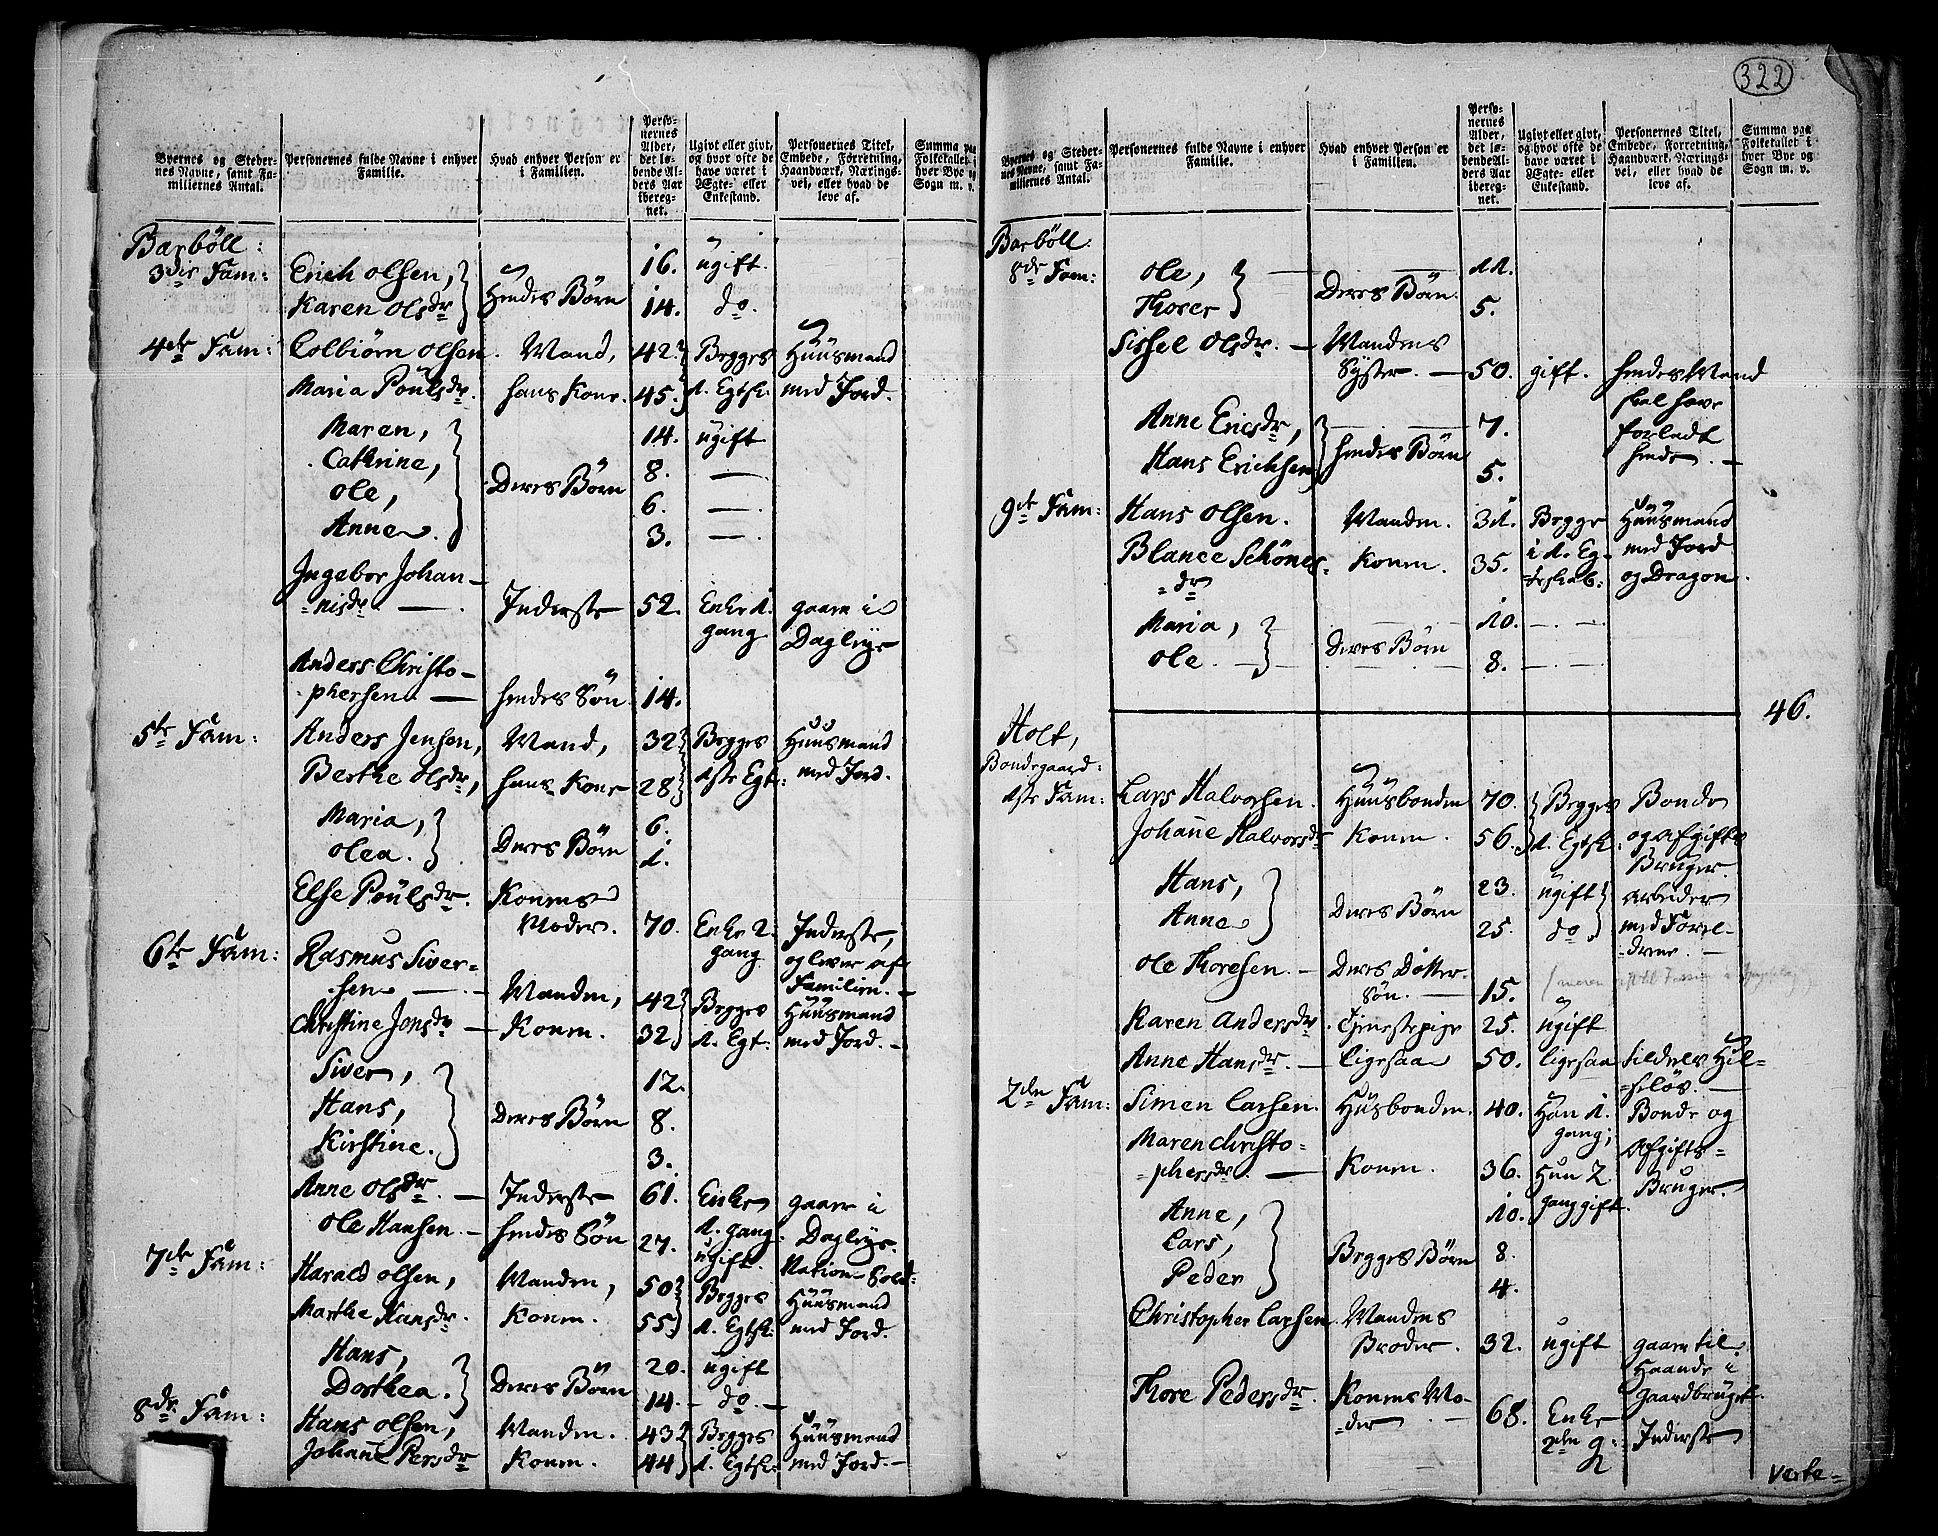 322
Byernes og Steder-
nes Navne, samt Fa-
miliernes Antal.
Personernes fulde Navne i enhver
Familie.
Hvad enhver Person er
i Familien.
Perso-
nernes
Alder,
det lø-
bende Al-
ders Aar
ibereg-
net.
Ugivt eller givt,
og hvor ofte de
have været i
Ægte- eller
Enkestand.
Personernes Titel,
Embede, Forretning,
Haandværk, Nærings-
vei, eller hvad de
leve af.
Summa paa
Folketallet i
hver Bye og
Sogn m. v.
Barböll:
3die Fam: Erich Olsen, } Hendes Börn 16. ugift.
Karen Olsdr 14. do.
4de Fam: Colbiörn Olsen. Mand, 42. Begges Huusmand
Maria Poulsdr. hans Kone. 45. 1. Egtsk. med Jord.
Maren, 14. ugift
Cathrine, Deres Börn 8. —
Ole, 6. —
Anne. 3. —
Ingebor Johan-
nisdr — Inderste 52. Enke 1. gaaer i
gang Dagleye
Anders Christo-
phersen — hendes Sön 14.
5te Fam: Anders Jensen, Mand, 32 Begges Huusmand
Berthe Olsdr, hans Kone 28 1ste Egt: med Jord.
Maria, } Deres Börn 6.
Olea. 1.
Else Poulsdr. Konens
Moder. 70. Enke 2. Inderste,
gang og lever af
Familien.
6te Fam: Rasmus Siver-
sen — Manden, 42 Begges Huusmand
Christine Jonsdr — Konen. 32 1. Egt: med Jord. —
Siver, 12.
Hans, Deres Börn 8.
Kirstine. 3.
Anne Olsdr. — Inderste 61. Enke gaaer i
1. gang Dagleye.
Ole Hansen. — hendes Sön 27. ugift. Nation. Sold:
7de Fam: Harald Olsen, Manden, 50 Begges Huusmand
Marthe Hansdr. Konen. 55 1. Egtsk: med Jord.
Hans, } Deres Börn 20. ugift
Dorthea. 14. — do —
8de Fam: Hans Olsen, Manden. 43 Begges Huusmand
Johanne Persdr Konen. 44 1. Egtsk: med Jord. —
Byernes og Steder-
nes Navne, samt Fa-
miliernes Antal.
Personernes fulde Navne i enhver
Familie.
Hvad enhver Person er
i Familien.
Perso-
nernes
Alder,
det lø-
bende Al-
ders Aar
ibereg-
net.
Ugivt eller givt,
og hvor ofte de
have været i
Ægte- eller
Enkestand.
Personernes Titel,
Embede, Forretning,
Haandværk, Nærings-
vei, eller hvad de
leve af.
Summa paa
Folketallet i
hver Bye og
Sogn m. v.
Barböll:
8de Fam: Ole, } Deres Börn. 11.
Thorer 5.
Sissel Olsdr. — Mandens
Syster. — 50. gift. hendes Mand
skal have
Anne Ericsdr, } hendes Börn 7. forladt
Hans Erichsen 5. hende. —
9de Fam: Hans Olsen. Manden. 31. Begge Huusmand
Blance Schönes- Konen. 35. i 1. Eg- med Jord
dr teskab: og Dragon.
Maria, } Deres Börn 10. —
Ole. — 8. —
46.
Holt,
Bondegaard:
1ste Fam: Lars Halvorsen. Huusbonden 70. Begges Bonde
Johanne Halvorsdr Konen. 56. 1. Egtsk. og Afgifts
Bruger.
Hans, } Deres Börn 23. ugift arbeider
Anne 25. do med Forel-
drene. —
Ole Thoresen. — Deres Dötter-
Sön. — 15.
Karen Andersdr. Tjenestepige 25. ugift
Anne Hansdr. — ligesaa 50. ligesaa tildels Hil-
selös. —
2den Fam: Simen Larsen. Husbonden. 40. Han 1. Bonde og
gang; Afgifts-
Maren Christo-
phersdr. — Konen. 36. Hun 2 Bruger.
gang gift.
Anne, 10.
Lars, Begges Börn 8.
Peder 4.
Christopher Larsen. Mandens
Broder. 32. ugift gaaer til
Haande i
Gaardbruget.
Thore Pedersdr. Konens Mo-
der — 68. Enke
2den g: Inderste
Verte-